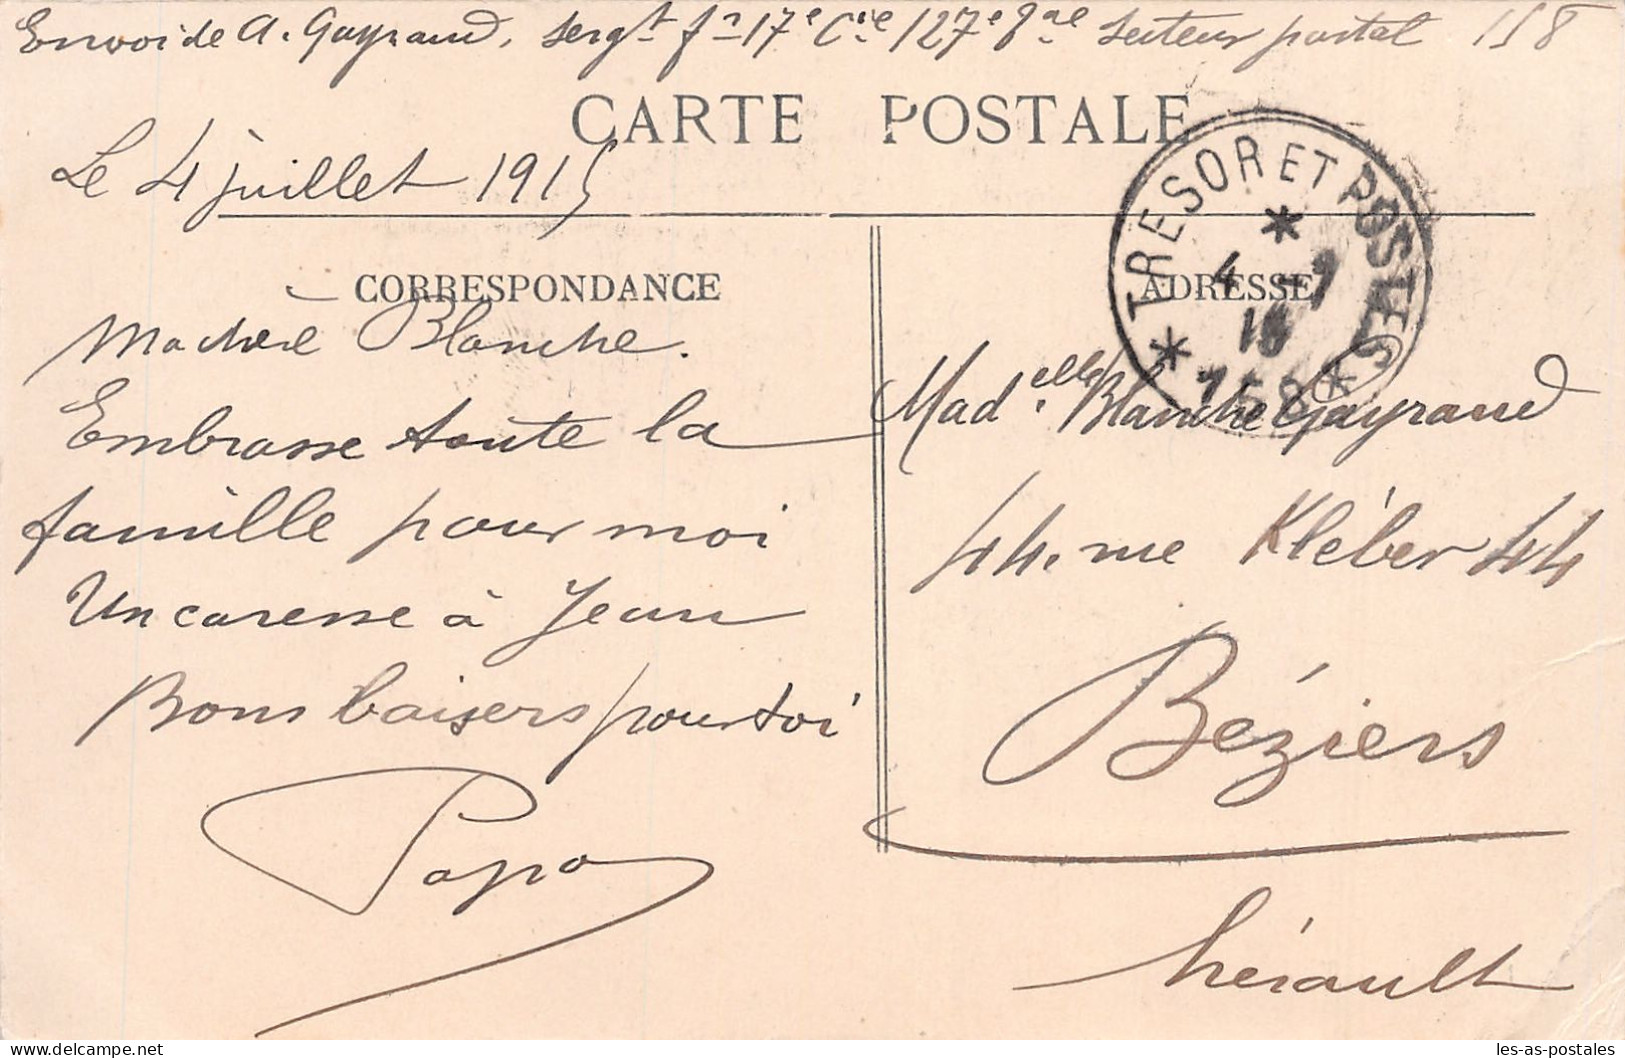 Envoi de A. Gayraud, sergt fr 17e Cie 127e Secteur postal 158
CARTE POSTALE
Le 4 juillet 1915
TRESOR ET POSTES
4 -7
15
*158*
CORRESPONDANCE
ADRESSE
Ma chere Blanche.
Embrasse toute la
famille pour moi
Un caresse à Jean
Bons baisers pour toi
Papa
Madelle Blanche Gayraud
44. rue Kléber 44
Béziers
hérault
les-as-postales @ delcampe.net